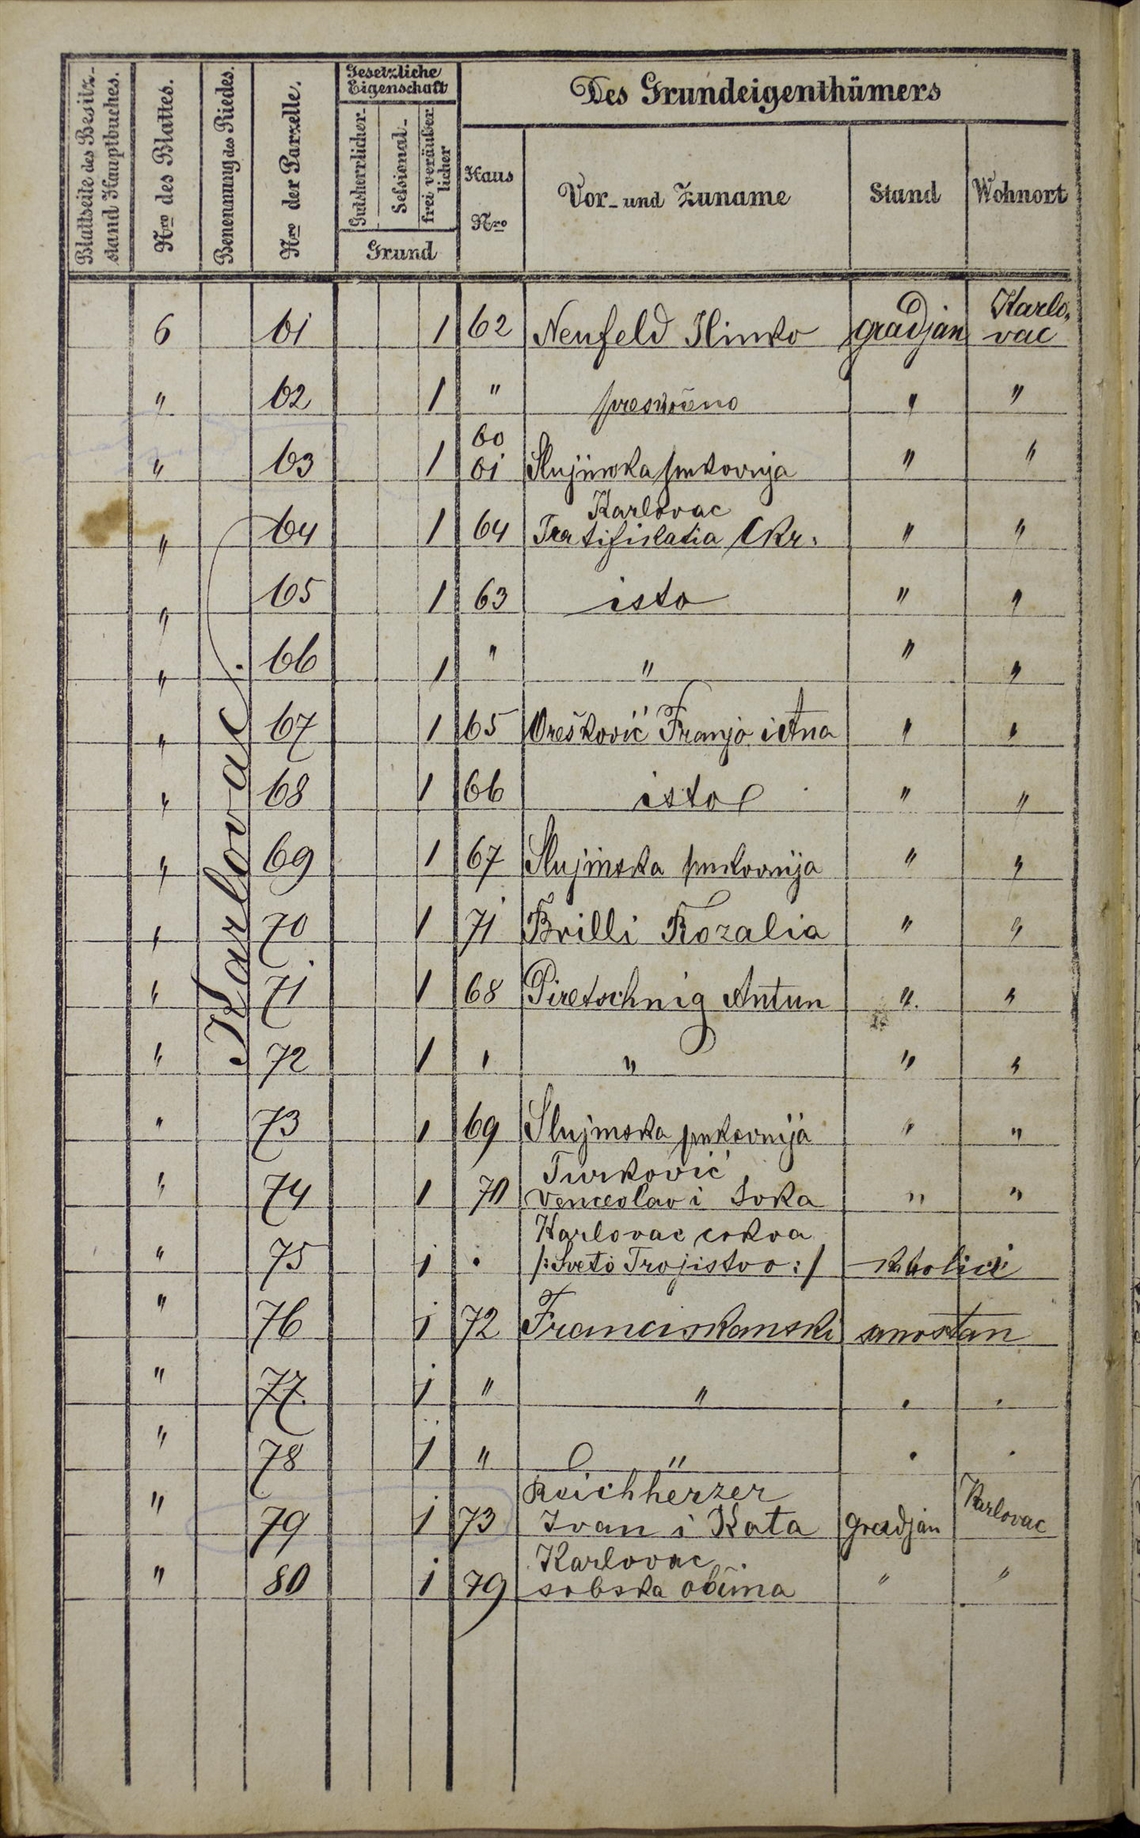 Blattseite des Besitz-
stand Hauptbuches.
Nro des Blattes.
Benennung des Riedes.
Nro der Parzelle.
Gesetzliche
Eigenschaft
Gutsherrlicher
Sessional-
frei veräußer
licher
Grund
Des Grundeigenthümers
Haus
Nro
Vor- und Zuname
Stand
Wohnort
Karlovac.
6 61 1 62 Neufeld Hinko gradjan Karlo-
vac
" 62 1 " preskočeno " "
60
" 63 1 61 Slujinska pukovnija " "
Karlovac
" 64 1 64 Ckr. " "
" 65 1 63 isto " "
" 66 1 " " " "
" 67 1 65 Orešković Franjo i Ana " "
" 68 1 66 isto " "
" 69 1 67 Slujinska pukovnija " "
" 70 1 71 Brilli Rozalia " "
" 71 1 68 Piretschnig Antun " "
" 72 1 " " " "
" 73 1 69 Slujinska pukovnija " "
Turković
" 74 1 70 Venceslav i Joka " "
Karlovac crkva
" 75 1 . /: Sveto Trojstvo :/
" 76 1 72 Franciskanski samostan
" 77. 1 " " . .
" 78 1 " " . .
Reichherzer
" 79 1 73 Ivan i Kata gradjan Karlovac
Karlovac
" 80 1 79 občina " "